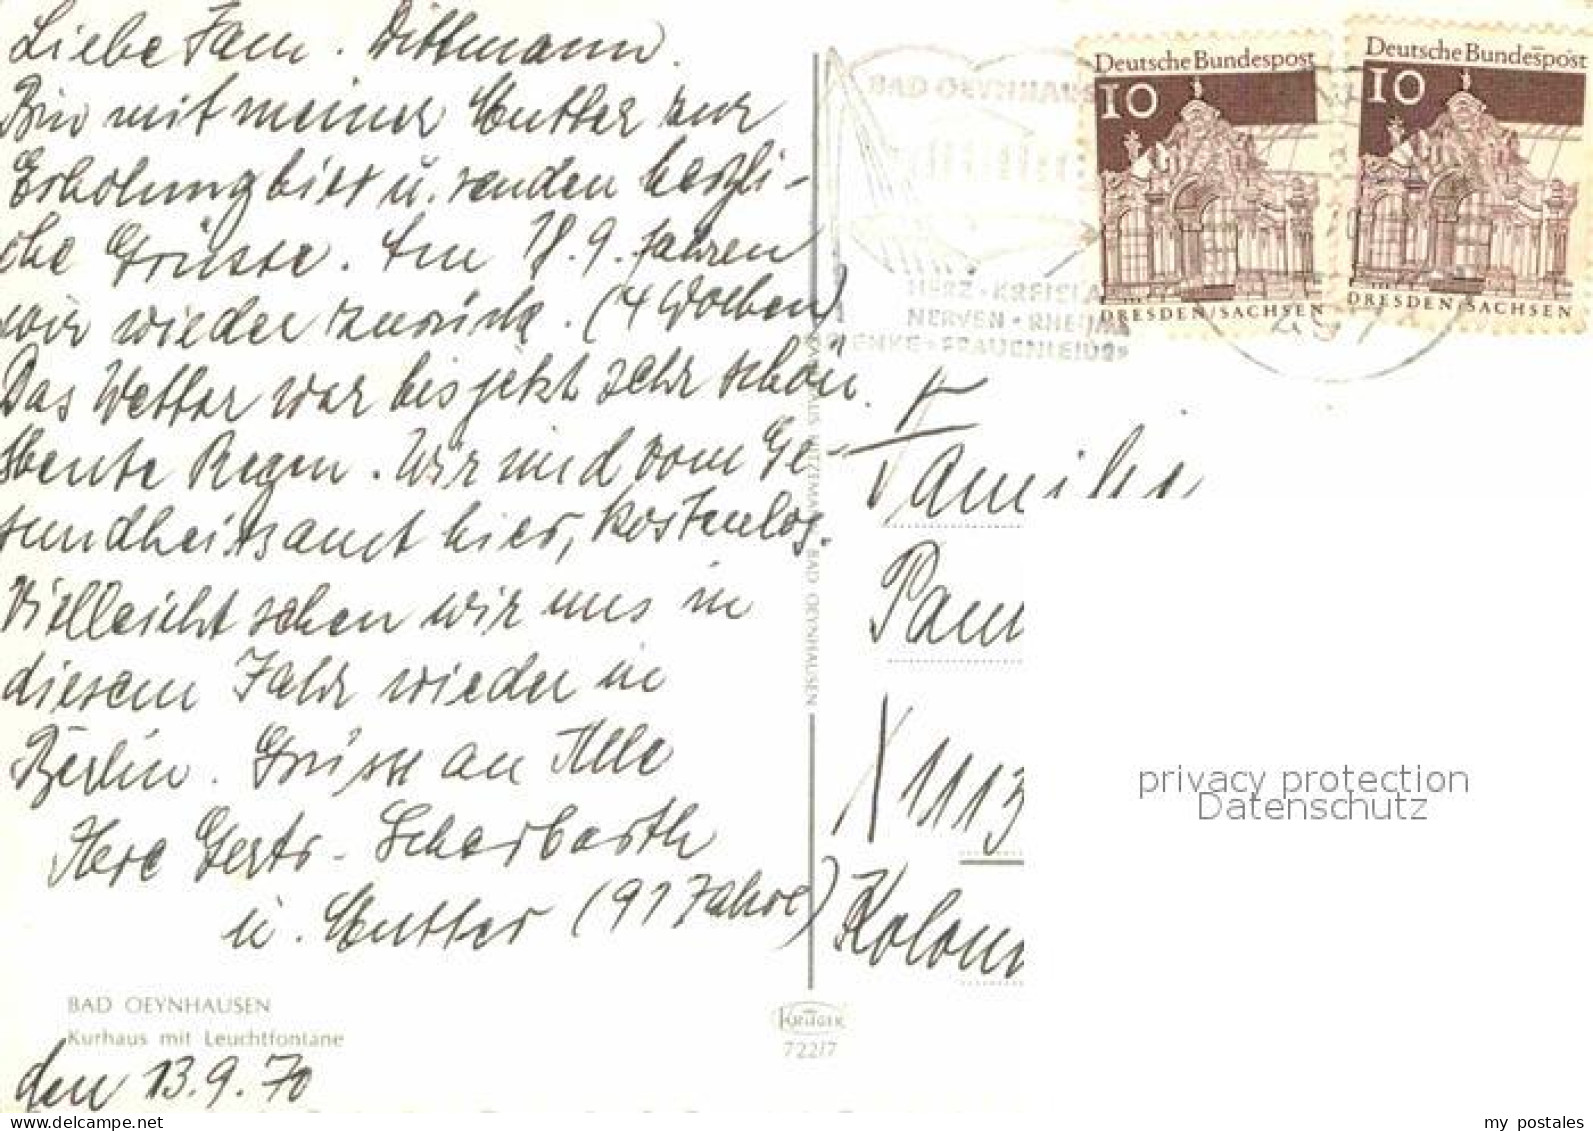 Liebe Fam. Dittmann.
Bin mit meiner Mutter zur
Erholung hier u. senden herzli-
che Grüsse. Am 18.9. fahren
wir wieder zurück. (4 Wochen)
Das Wetter war bis jetzt sehr schön.
Heute Regen. Wir sind vom Ge-
sundheitsamt hier, kostenlos.
Vielleicht sehen wir uns in
diesem Jahr wieder in
Berlin. Grüsse an Alle
Ihre Gertr. Scharbarth
u. Mutter (91 Jahre)
BAD OEYNHAUSEN
Kurhaus mit Leuchtfontäne
den 13.9.70
BAD OEYNHAUSEN
KRÜGER
722/7
BAD OEYNHAUS
HERZ · KREISLA
NERVEN · RHEUMA
Deutsche Bundespost
10
DRESDEN/SACHSEN
Deutsche Bundespost
10
DRESDEN/SACHSEN
Familie
X 1113
privacy protection
Datenschutz
my postales